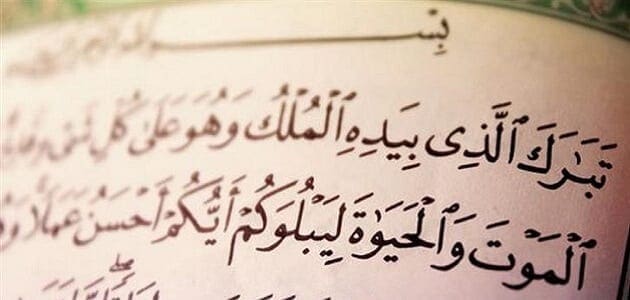 بِسْمِ
تَبَٰرَكَ ٱلَّذِى بِيَدِهِ ٱلْمُلْكُ وَهُوَ عَلَىٰ كُلِّ شَىْءٍ
ٱلْمَوْتَ وَٱلْحَيَوٰةَ لِيَبْلُوَكُمْ أَيُّكُمْ أَحْسَنُ عَمَلًا